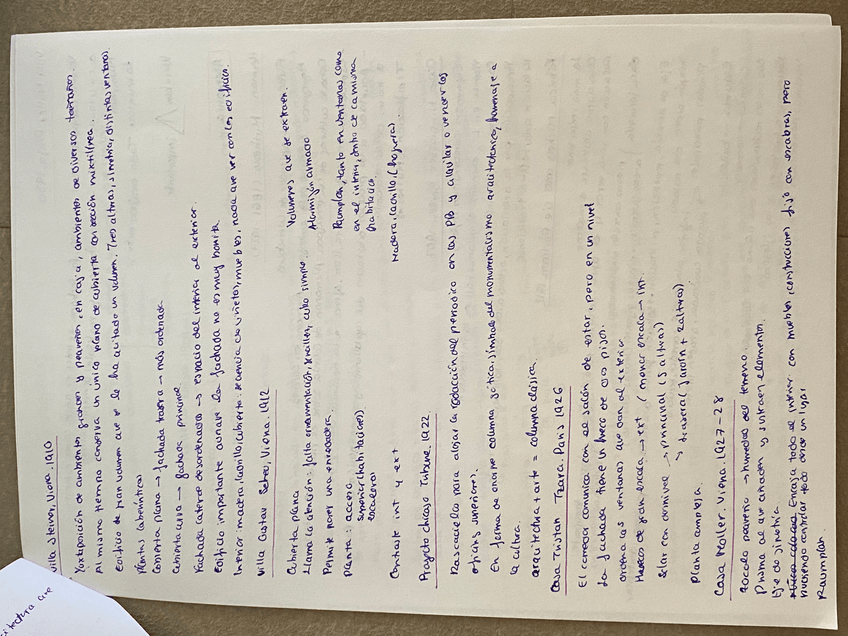 Villa Steiner, Viena. 1910
Yuxtaposición de ambientes grandes y pequeños, en caja, ambientes de diversos tamaños
Al mismo tiempo conserva un único plano de cubierta con sección mixtilínea.
Edificio de gran volumen que se le ha quitado un volumen. Tres alturas, simetría, distintas ventanas.
Plantas laberínticas
Cubierta plana → fachada trasera → más ordenada
Cubierta curva → fachada principal
Fachada lateral desordenada → espacio del interior al exterior.
Edificio importante aunque la fachada no es muy bonita
Interior madera, ladrillo, cubierto: secuencia de viñetas, muebles, nada que ver con los edificios.
Villa Gustav Scheu, Viena. 1912
Cubierta plana
Volúmenes que se extraen.
Llama la atención: falta ornamentación, sencillez, cubo simple.
Hormigón armado
Permite poner una enredadera.
Raumplan, tanto en ventanas como
en el interior, dentro de la misma
habitación
Planta: acceso
superior (habitaciones)
escaleras
Contraste int y ext
Madera, ladrillo, (hoguera)
Proyecto Chicago Tribune, 1922
Rascacielos para alojar la redacción del periódico en las PB y alquilar o vender las
oficinas superiores.
En forma de enorme columna gótica. símbolo del monumentalismo arquitectónico, homenaje a
la cultura.
arquitectura + arte = columna clásica.
Casa Tristan Tzara. París 1926
El comedor comunica con el salón de estar, pero en un nivel
La fachada tiene un hueco de dos pisos.
ordena las ventanas que dan al exterior
Huecos de gran escala → ext / menor escala → int.
Solar con desnivel → principal (5 alturas)
↘ trasera (jardín + 2 alturas)
Planta compleja.
Casa Moller. Viena. 1927-28
zócalo pequeño → humedad del terreno.
Prisma al que añaden y sustraen elementos.
Eje de simetría
Encaja todo el interior con muebles (construcciones) fijo con escaleras, pero
pudiendo controlar todo desde un lugar
Raumplan.